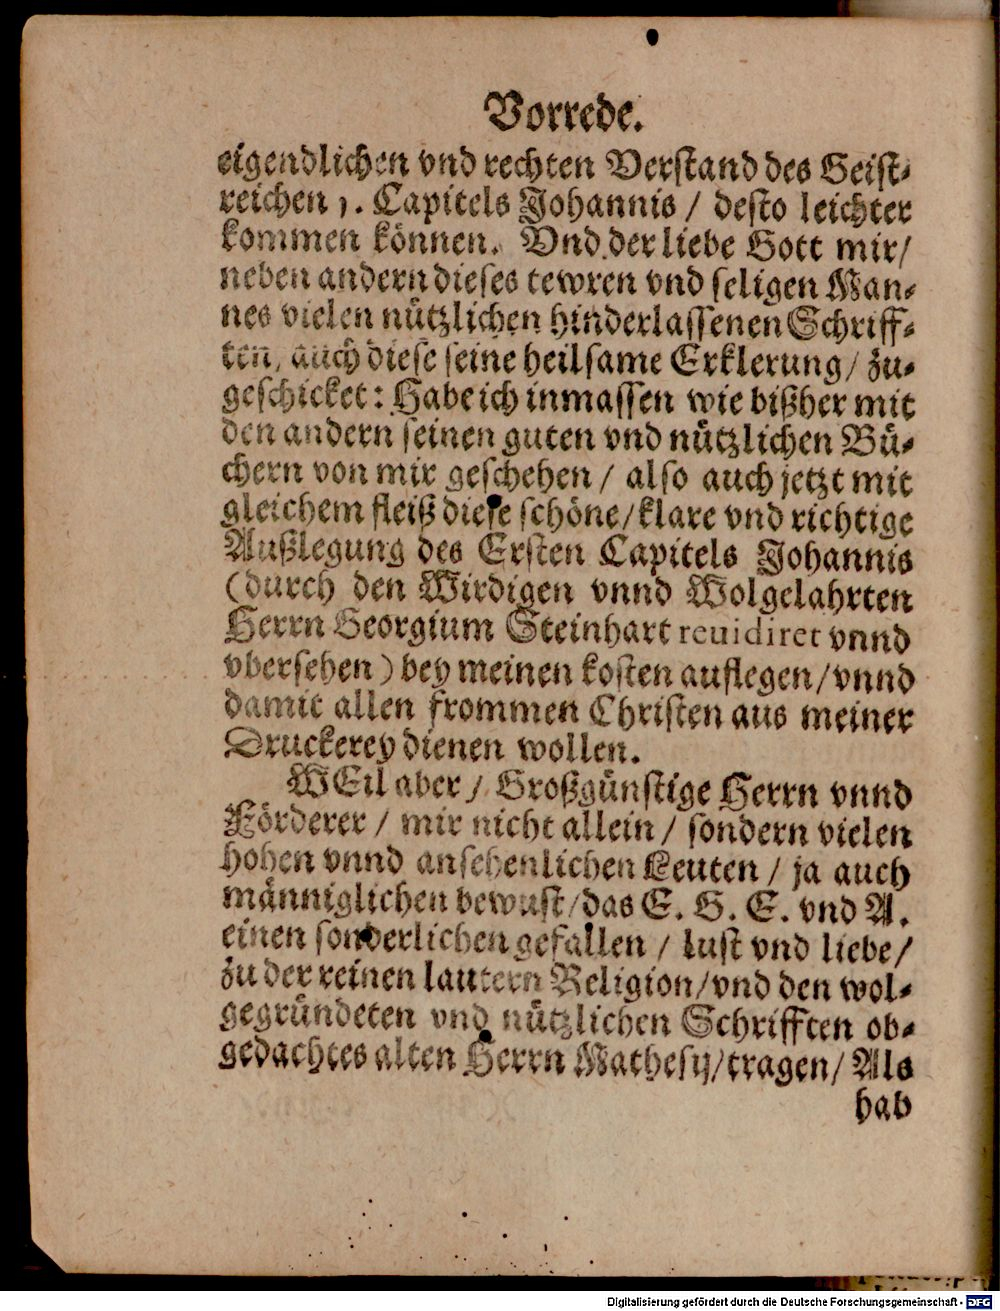 Vorrede.
eigendlichen vnd rechten Verstand des Geist-
reichen 1. Capitels Johannis / desto leichter
kommen können. Vnd der liebe Gott mir/
neben andern dieses tewren vnd seligen Man-
nes vielen nützlichen hinderlassenen Schriff-
ten, auch diese seine heilsame Erklerung/ zu-
geschicket: Habe ich inmassen wie bißher mit
den andern seinen guten vnd nützlichen Bü-
chern von mir geschehen / also auch jetzt mit
gleichem fleiß diese schöne/klare vnd richtige
Außlegung des Ersten Capitels Johannis
(durch den Wirdigen vnnd Wolgelahrten
Herrn Georgium Steinhart reuidiret vnnd
vbersehen) bey meinen kosten auflegen/vnnd
damit allen frommen Christen aus meiner
Druckerey dienen wollen.
WEil aber / Großgünstige Herrn vnnd
Förderer / mir nicht allein / sondern vielen
hohen vnnd ansehenlichen Leuten / ja auch
männiglichen bewust/das E. G. E. vnd A.
einen sonderlichen gefallen / lust vnd liebe/
zu der reinen lautern Religion/vnd den wol-
gegründeten vnd nützlichen Schrifften ob-
gedachtes alten Herrn Mathesij/tragen/ Als
hab
Digitalisierung gefördert durch die Deutsche Forschungsgemeinschaft - DFG